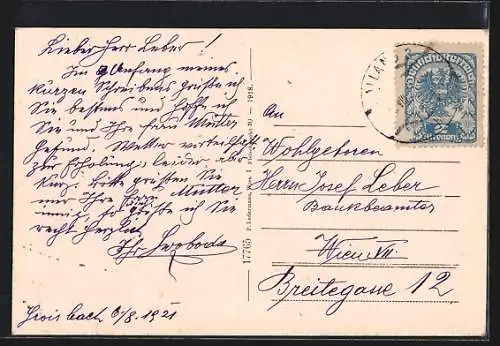 Lieber Herr Leber!
Im Anfang meines
kurzen Schreibens grüße ich
Sie bestens und hoffe ich
Sie und Ihre Frau Mutter
gesund. Wetter
zur Erholung, leider, aber
kurz. Bitte grüßen Sie
mir Ihre Frau Mutter
innig, so grüße ich Sie
recht herzlich
Ihr Swoboda
Groisbach 6/8. 1921
17765 P. Ledermann, Wien, I. 1918.
An
Wohlgeboren
Herrn Josef Leber
Bankbeamter
Wien VII.
Breitegasse 12
ALLAND